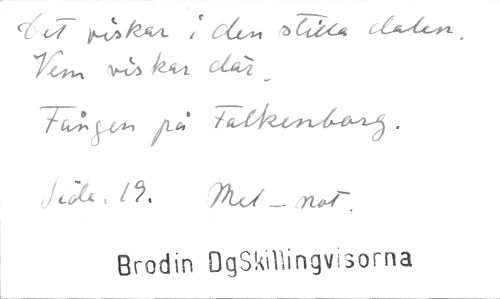 Det viskar i den stilla dalen.
Vem viskar där.
Fången på Falkenborg.
Sida. 19. Mel-not.
Brodin DgSkillingvisorna